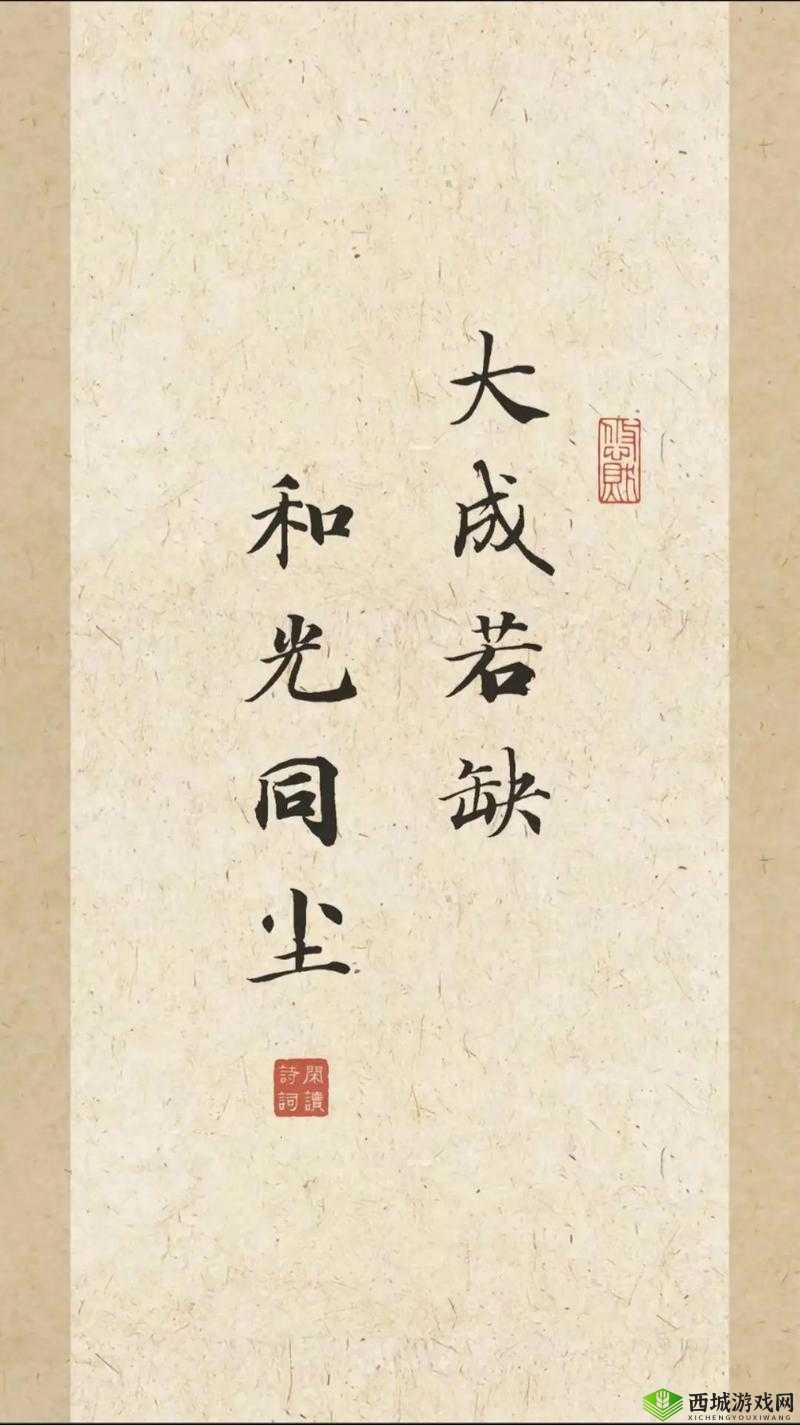 大成若缺
和光同尘
閑讀
詩詞
西城游戏网
XICHENGYOUXIWANG